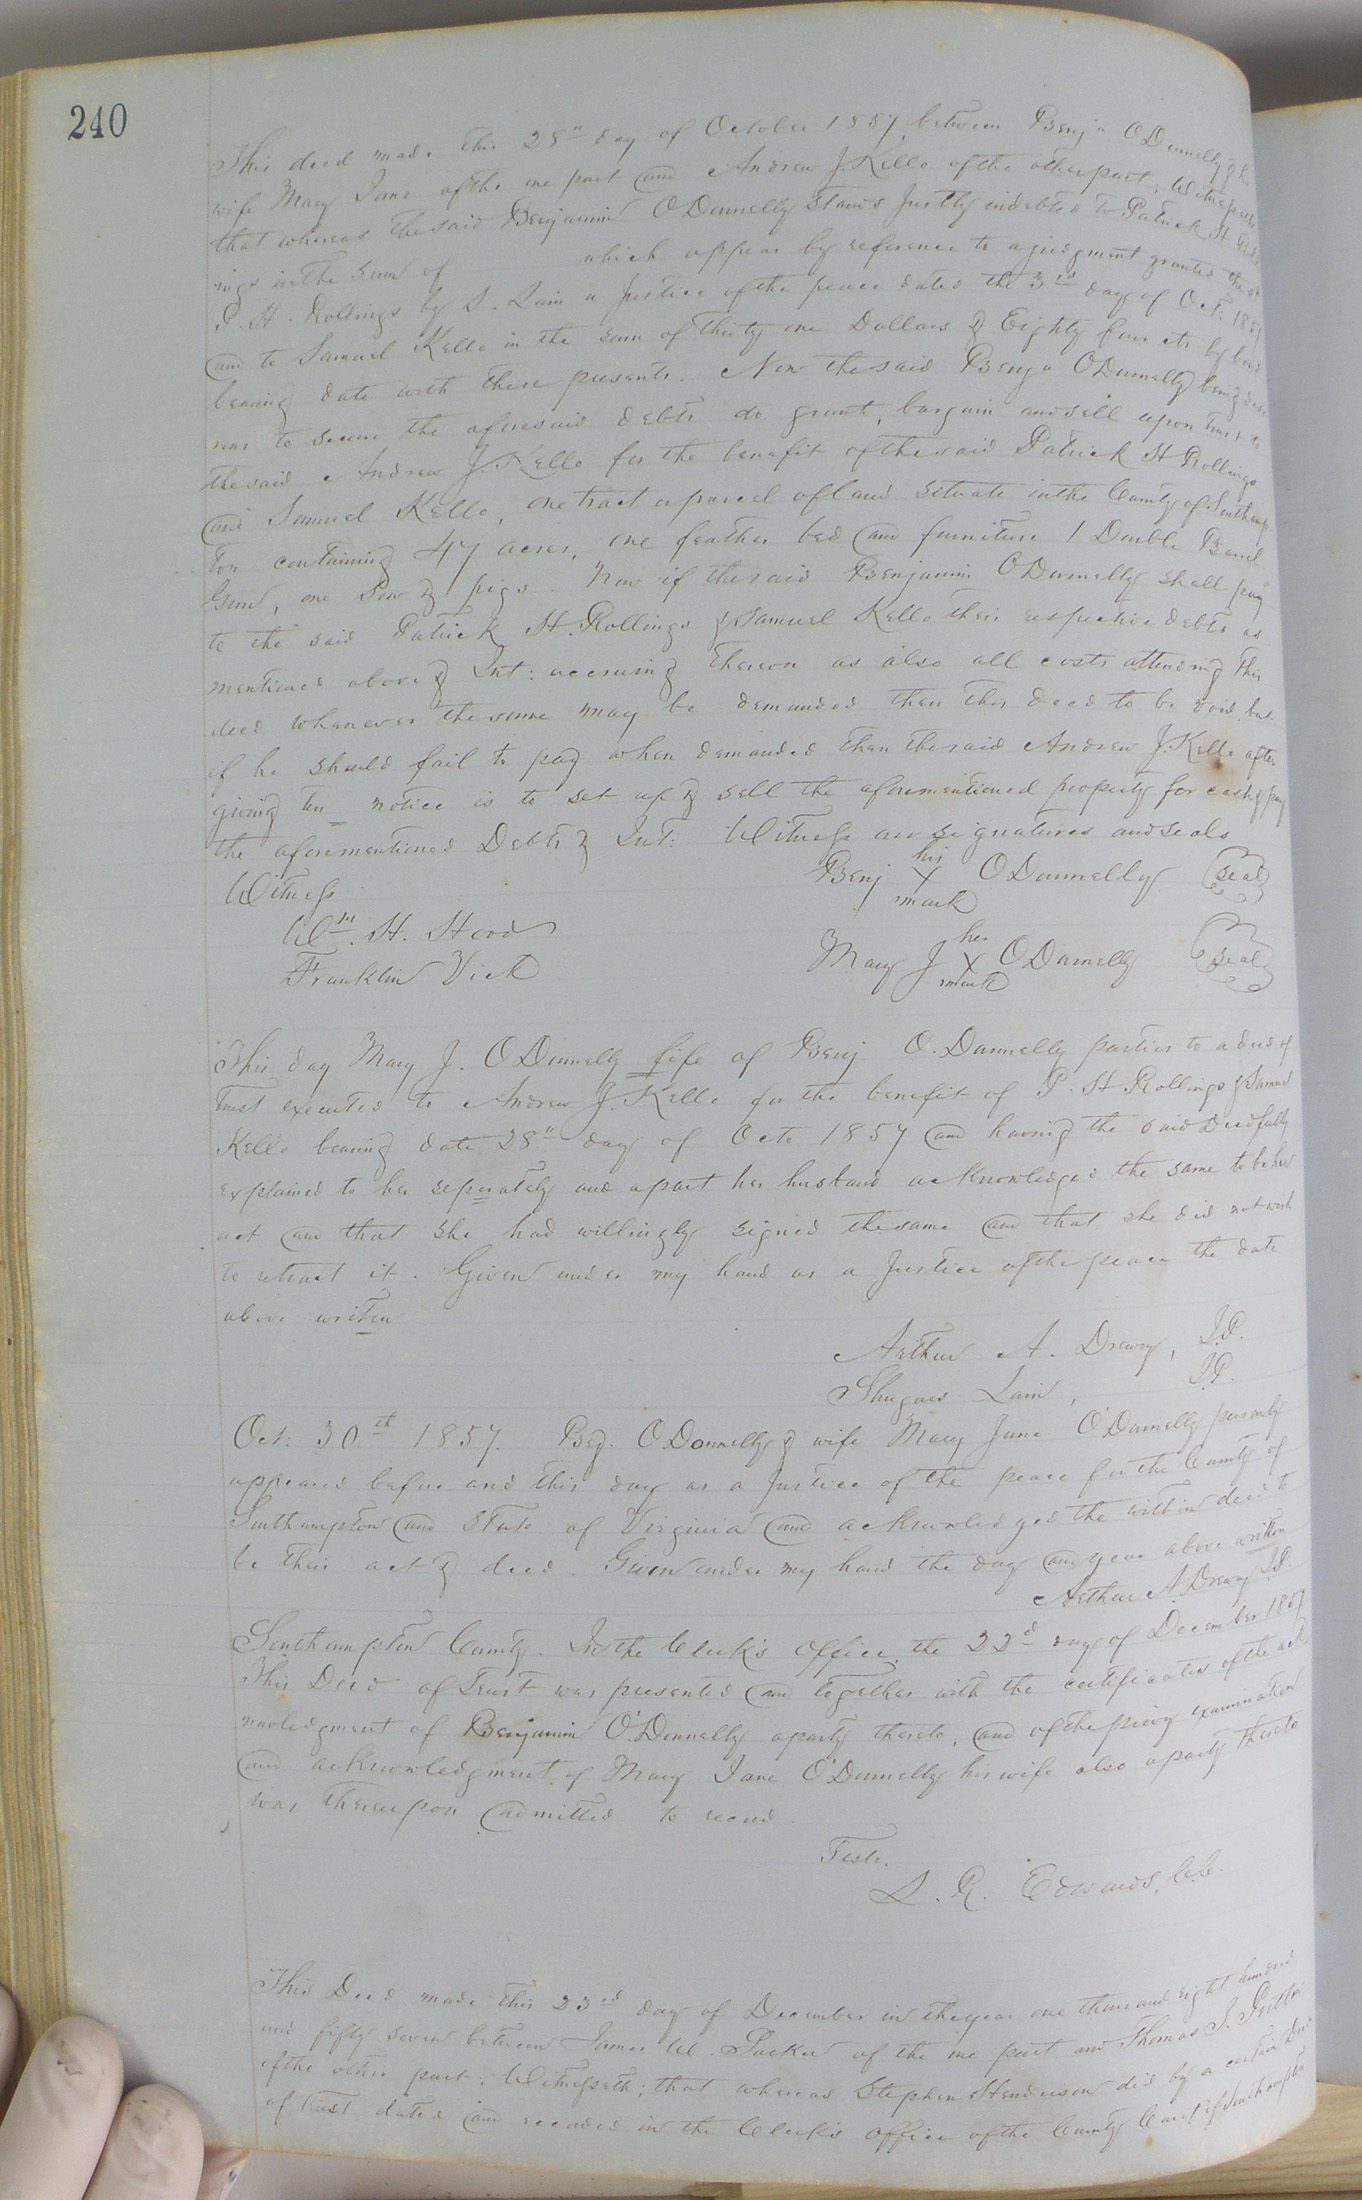 240
This deed made this 28th day of October 1857 between Benja O'Donnelly & his
wife Mary Jane of the one part and Andrew J. Kello of the other part: Witnesseth
that whereas the said Benjamin O'Donnelly stands justly indebted to Patrick H Roll
ings in the sum of which appear by reference to a judgment granted the sd
P. H. Rollings by S. Lain a Justice of the peace dated the 3rd day of Oct: 1857
and to Samuel Kello in the sum of thirty one Dollars & Eighty four cts by bond
bearing date with these presents. Now the said Benja O'Donnelly being desi
rous to secure the aforesaid debts do grant, bargain and sell upon trust to
the said Andrew J. Kello for the benefit of the said Patrick H Rollings
and Samuel Kello, one tract or parcel of land situate in the County of Southamp
ton containing 47 acres, one feather bed and furniture 1 Double Barrel
Gun, one Sow & pigs. Now if the said Benjamin O'Donnelly shall pay
to the said Patrick H. Rollings & Samuel Kello their respective debts as
mentioned above & Int: accruing thereon as also all costs attending this
deed whenever the same may be demanded then this deed to be void, but
if he should fail to pay when demanded then the said Andrew J. Kello after
giving ten notice is to set up & sell the aforementioned property for cash & pay
the aforementioned Debts & Int: Witness our signatures and seals
Witness
Benj his X mark O'Donnelly (seal)
Wm. H. Hood
Franklin Vick
Mary J her X mark O'Donnelly (seal)
This day Mary J. O'Donnelly fife of Benj O. Donnelly parties to a deed of
trust executed to Andrew J. Kello for the benefit of P. H Rollings & Samuel
Kello bearing date 28th day of Octo 1857 and having the said Deed fully
explained to her seperately and apart her husband acknowledged the same to be her
act and that she had willingly signed the same and that she did not wish
to retract it. Given under my hand as a Justice of the peace the date
above writen
Arthur A. Drewry, J.P.
Shugars Lain, J.P.
Oct: 30th 1857. Benj. O'Donnelly & wife Mary Jane O'Donnelly personly
appeared before and this day as a Justice of the peace for the County of
Southampton and State of Virginia and acknowledged the within deed to
be their act & deed. Given under my hand the day and year above written
Arthur A. Drewry J.P.
Southampton County. In the Clerk's Office, the 22d day of December 1857
This Deed of Trust was presented and together with the certificates of the ack
nowledgment of Benjamin O'Donnelly a party thereto, and of the privy examination
and acknowledgment of Mary Jane O'Donnelly his wife also a party thereto
was thereupon admitted to record.
Teste.
L. R. Edwards, C.C.
This Deed made this 23rd day of December in the year one thousand eight hundred
and fifty seven between James W. Parker of the one part and Thomas J. Pretlow
of the other part. Witnesseth; that whereas Stephen Henderson did by a certain Deed
of trust dated and recorded in the Clerk's Office of the County Court of Southampton